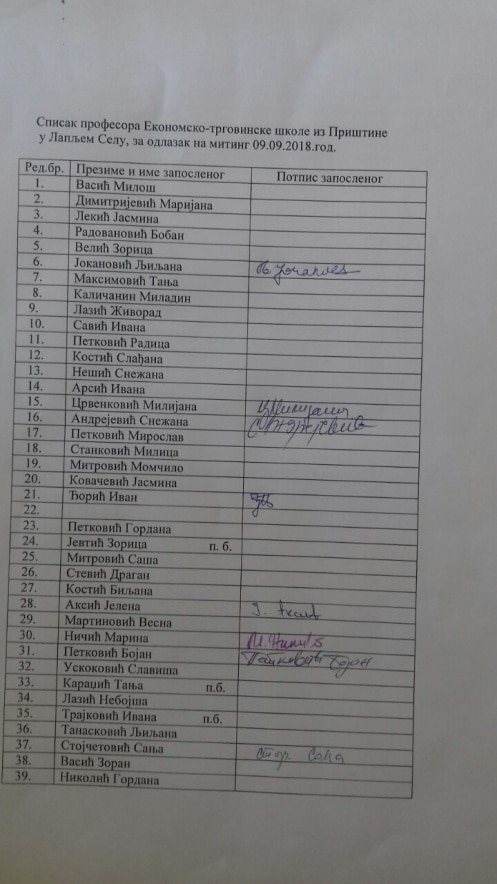 Списак професора Економско-трговинске школе из Приштине
у Лапљем Селу, за одлазак на митинг 09.09.2018.год.
Ред.бр. Презиме и име запосленог Потпис запосленог
1. Васић Милош
2. Димитријевић Маријана
3. Лекић Јасмина
4. Радовановић Бобан
5. Велић Зорица
6. Јокановић Љиљана
7. Максимовић Тања
8. Каличанин Миладин
9. Лазић Живорад
10. Савић Ивана
11. Петковић Радица
12. Костић Слађана
13. Нешић Снежана
14. Арсић Ивана
15. Црвенковић Милијана
16. Андрејевић Снежана
17. Петковић Мирослав
18. Станковић Милица
19. Митровић Момчило
20. Ковачевић Јасмина
21. Ђорић Иван
22.
23. Петковић Гордана
24. Јевтић Зорица п. б.
25. Митровић Саша
26. Стевић Драган
27. Костић Биљана
28. Аксић Јелена
29. Мартиновић Весна
30. Ничић Марина
31. Петковић Бојан Петковић Бојан
32. Ускоковић Славиша
33. Караџић Тања п.б.
34. Лазић Небојша
35. Трајковић Ивана п.б.
36. Танасковић Љиљана
37. Стојчетовић Сања
38. Васић Зоран
39. Николић Гордана